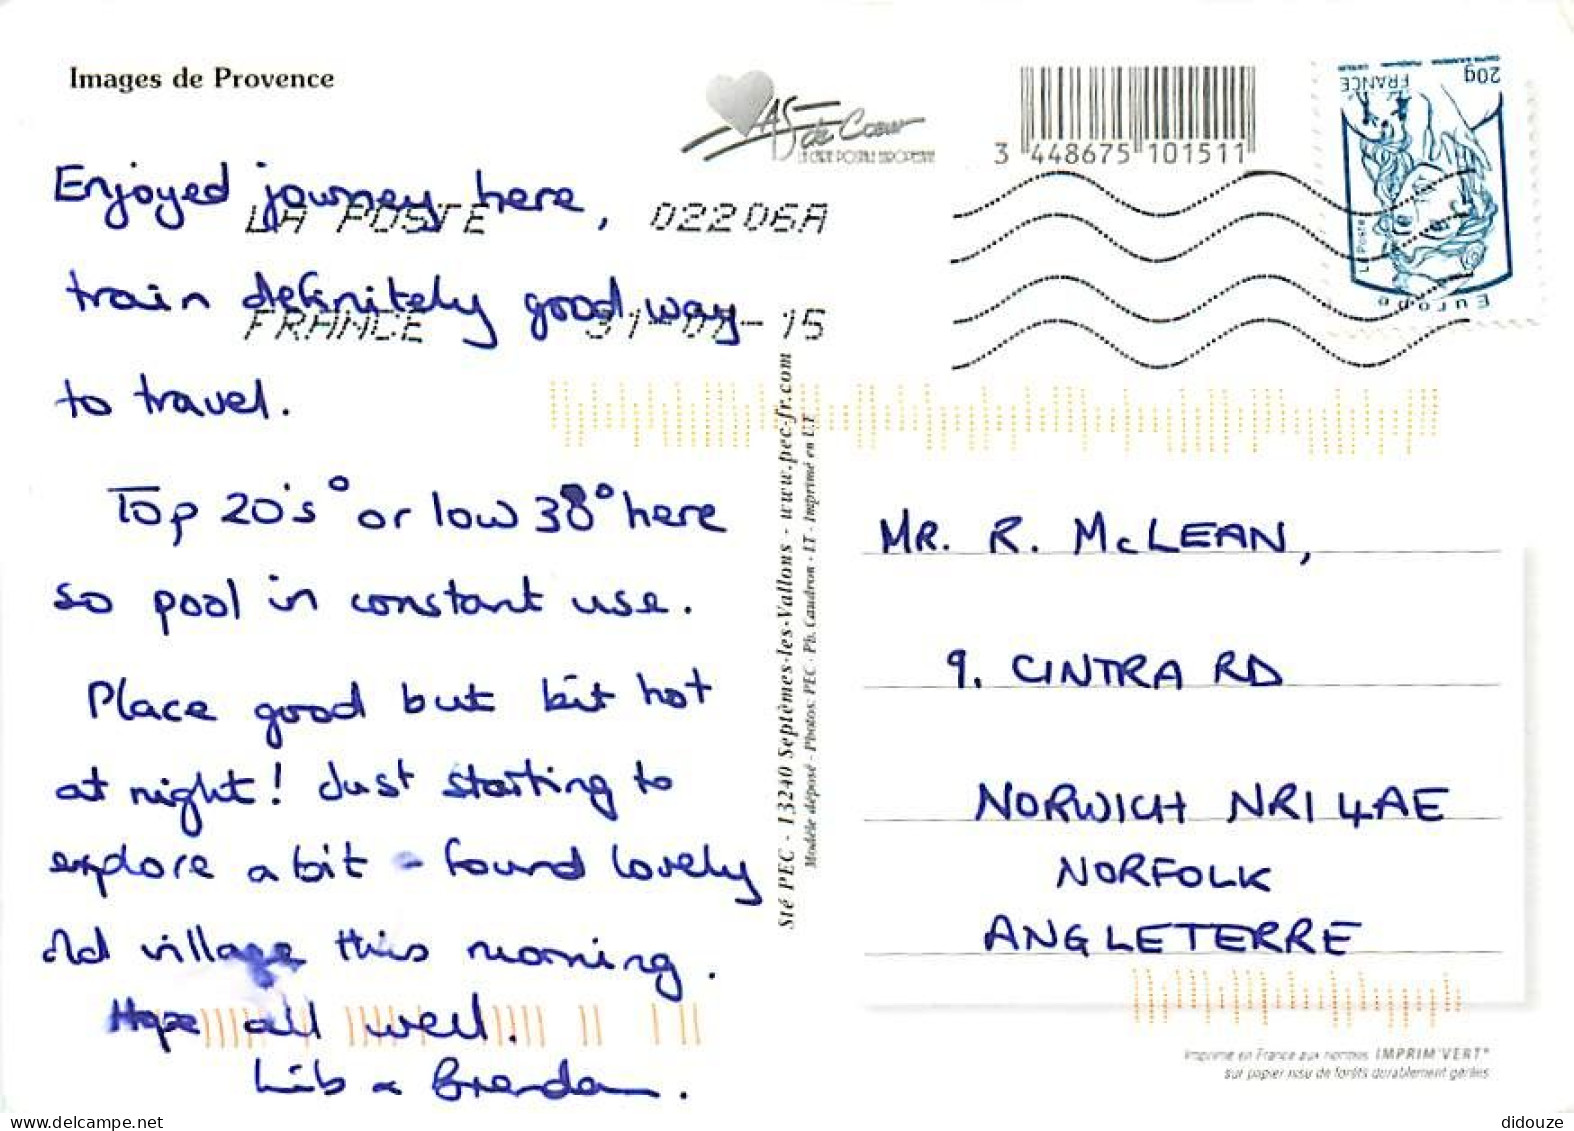 Images de Provence
AS de Cœur
LA CARTE POSTALE EUROPEENNE
3 448675 101511
20g
FRANCE
La Poste
Europe
LA POSTE 02206A
FRANCE 31-07-15
Enjoyed journey here,
train definitely good way
to travel.
Top 20's° or low 30° here
so pool in constant use.
Place good but bit hot
at night! Just starting to
explore a bit - found lovely
old village this morning.
Hope all well.
Lib & Brendan.
Sté PEC - 13240 Septèmes-les-Vallons - www.pec-fr.com
Modèle déposé - Photos: PEC - Ph. Caudron - LT - Imprimé en U.T
MR. R. McLEAN,
9. CINTRA RD
NORWICH NR1 4AE
NORFOLK
ANGLETERRE
Imprimé en France aux normes IMPRIM'VERT®
sur papier issu de forêts durablement gérées
didouze
www.delcampe.net